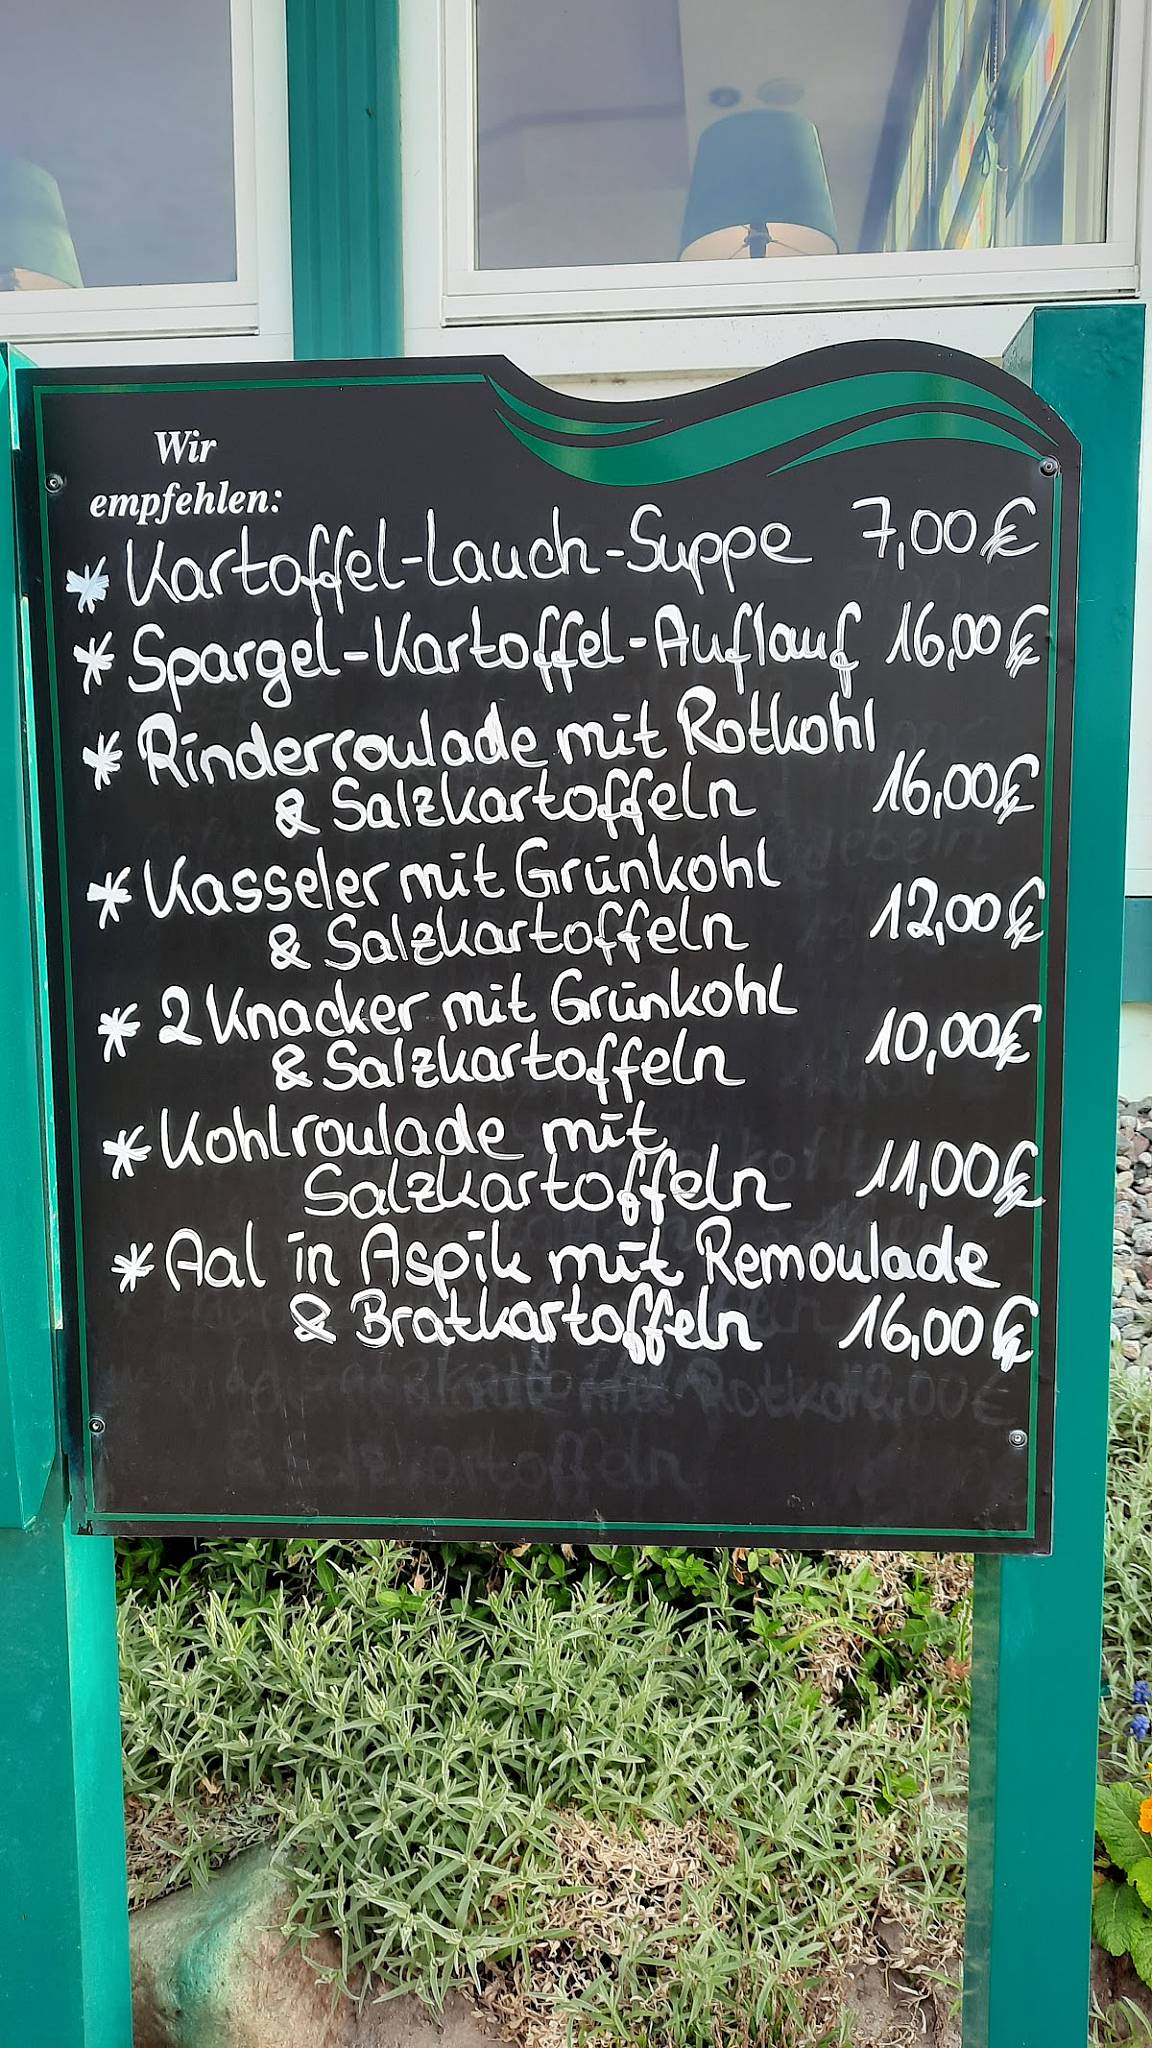 Wir
empfehlen:
* Kartoffel-Lauch-Suppe 7,00 €
* Spargel-Kartoffel-Auflauf 16,00 €
* Rinderroulade mit Rotkohl
& Salzkartoffeln 16,00 €
* Kasseler mit Grünkohl
& Salzkartoffeln 12,00 €
* 2 Knacker mit Grünkohl
& Salzkartoffeln 10,00 €
* Kohlroulade mit
Salzkartoffeln 11,00 €
* Aal in Aspik mit Remoulade
& Bratkartoffeln 16,00 €